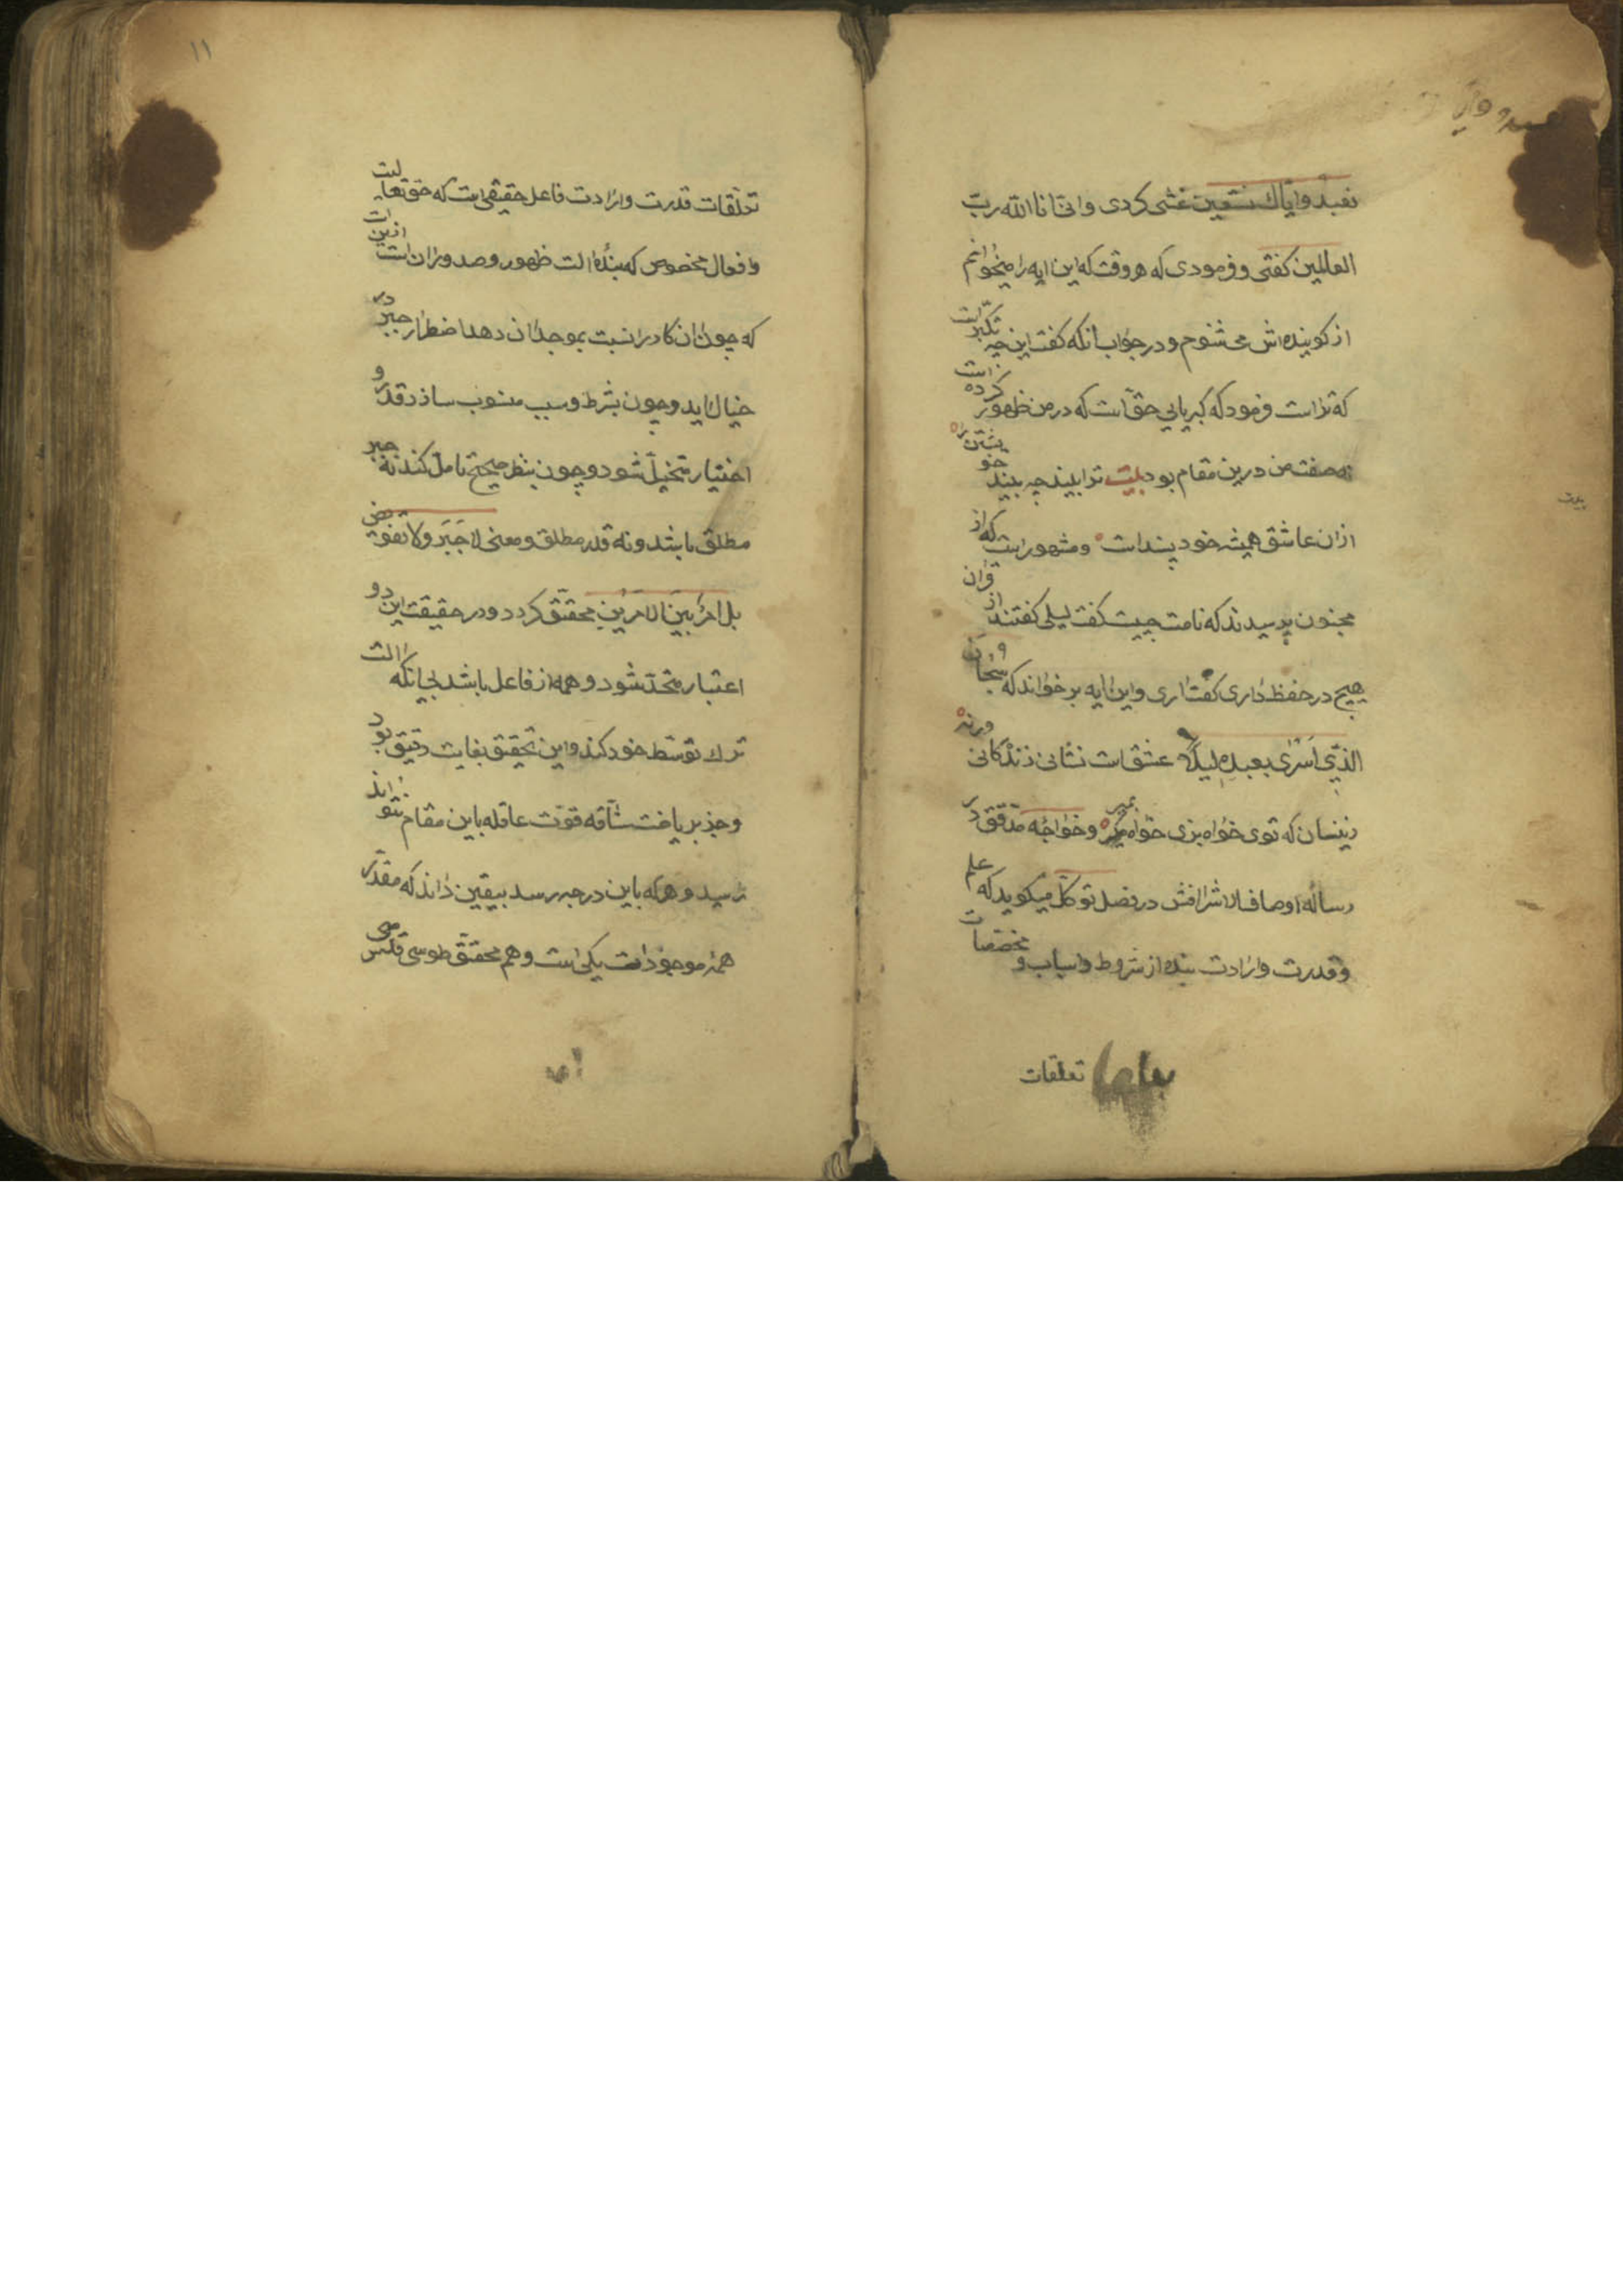 نعبد واياك نستعين غشى كردى وانى انا الله رب
العالمين كفتى وفرمودى كه هر وقت كه اين ايه را ميخوانم
از كوينده اش مى شنوم ودر جواب انكه كفت اين چه تكبر است
كه تراست فرمود كه كبريايى حق است كه در من ظهور كرده است
نه صفت من درين مقام بود بيت ترا بيند چه بيند خويشتن را
ازان عاشق هميشه خود پسند است ومشهور است كه از
مجنون پرسيدند كه نامت چيست كفت ليلى كفتند از قران
هيچ در حفظ دارى كفت ارى واين ايه بر خواند كه سبحان
الذى اسرى بعبده ليلا عشق است نشانى زندكانى ورنه
زينسان كه توى خواه بزى خواه بمير وخواجه مدقق در
رساله اوصاف الاشرافش در فصل توكل ميكويد كه علم
وقدرت وارادت بنده از شروط واسباب ومخصصات
تعلقات
١١
تعلقات قدرت وارادت فاعل حقيقى است كه حق تعاليست
وافعال مخصوص كه بنده الت ظهور وصدور ان است ازين است
كه چون ان كار را نسبت بموجد ان دهد اضطرار جبر در
خيال ايد وچون بشرط وسبب منسوب سازد قدر و
اختيار متخيل شود وچون بنظر صحيح تامل كند نه جبر
مطلق باشد ونه قدر مطلق ومعنى لا جبر ولا تفويض
بل امر بين الامرين محقق كردد ودر حقيقت اين دو
اعتبار متحد شود وهمه از فاعل باشد بى انكه الت
ترك توسط خود كند واين تحقيق بغايت دقيق بود
وجز برياضت شاقه قوت عاقله باين مقام نتواند
رسيد وهركه باين درجه رسد بيقين داند كه مقدر
همه موجودات يكى است وهم محقق طوسى قدس